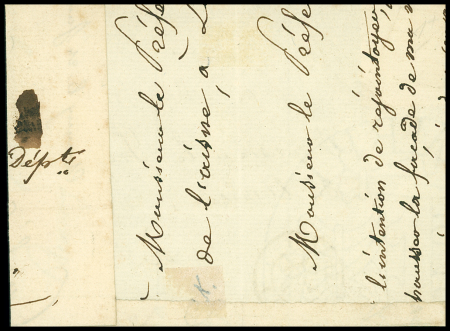 Dépt.
Monsieur le Préfe
de l'aisne, a L
Monsieur le Préfe
l'intention de rejointoyer
hausser la façade de ma m